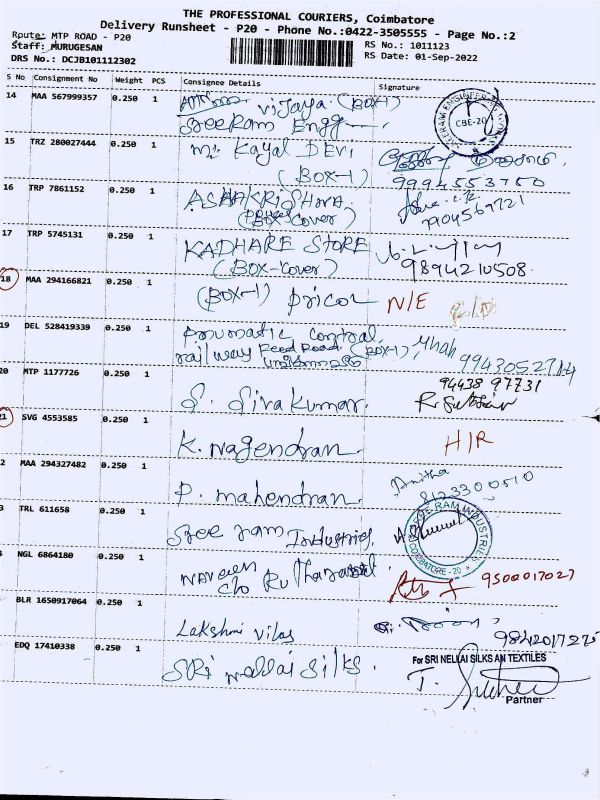 THE PROFESSIONAL COURIERS, Coimbatore
Delivery Runsheet - P20 - Phone No.:0422-3505555 - Page No.:2
Rpute: MTP ROAD - P20
Staff: MURUGESAN
RS No.: 1011123
DRS No.: DCJB101112302
RS Date: 01-Sep-2022
S No Consignment No Weight PCS Consignee Details Signature
14 MAA 567999357 0.250 1 Vijaya (BOX-1)
SreeRam Engg
CBE-20
15 TRZ 280027444 0.250 1 Mr. Kayal DEVi
(BOX-1) 9994553750
16 TRP 7861152 0.250 1 ASHAKRISHNA
(BOX-Cover) 7904569721
17 TRP 5745131 0.250 1 KADHARE STORE
(BOX-Cover) 9894210508.
18 MAA 294166821 0.250 1 (BOX-1) Pricol N/E
19 DEL 528419339 0.250 1 Pnumatic Control,
railway Feed Road (BOX-1),
20 MTP 1177726 0.250 1 S. Siva kumar. 94438 97731
21 SVG 4553585 0.250 1 K. Nagendran H/R
2 MAA 294327482 0.250 1 P. mahendran. Anitha
8123300510
3 TRL 611658 0.250 1 Sree ram Industries,
COIMBATORE - 20
NGL 6864180 0.250 1 Naveen
C/o 9500017027
BLR 1650917064 0.250 1 Lakshmi vilas 9842017275
EDQ 17410338 0.250 1 SRi nellai Silks.
For SRI NELLAI SILKS AN TEXTILES
Partner